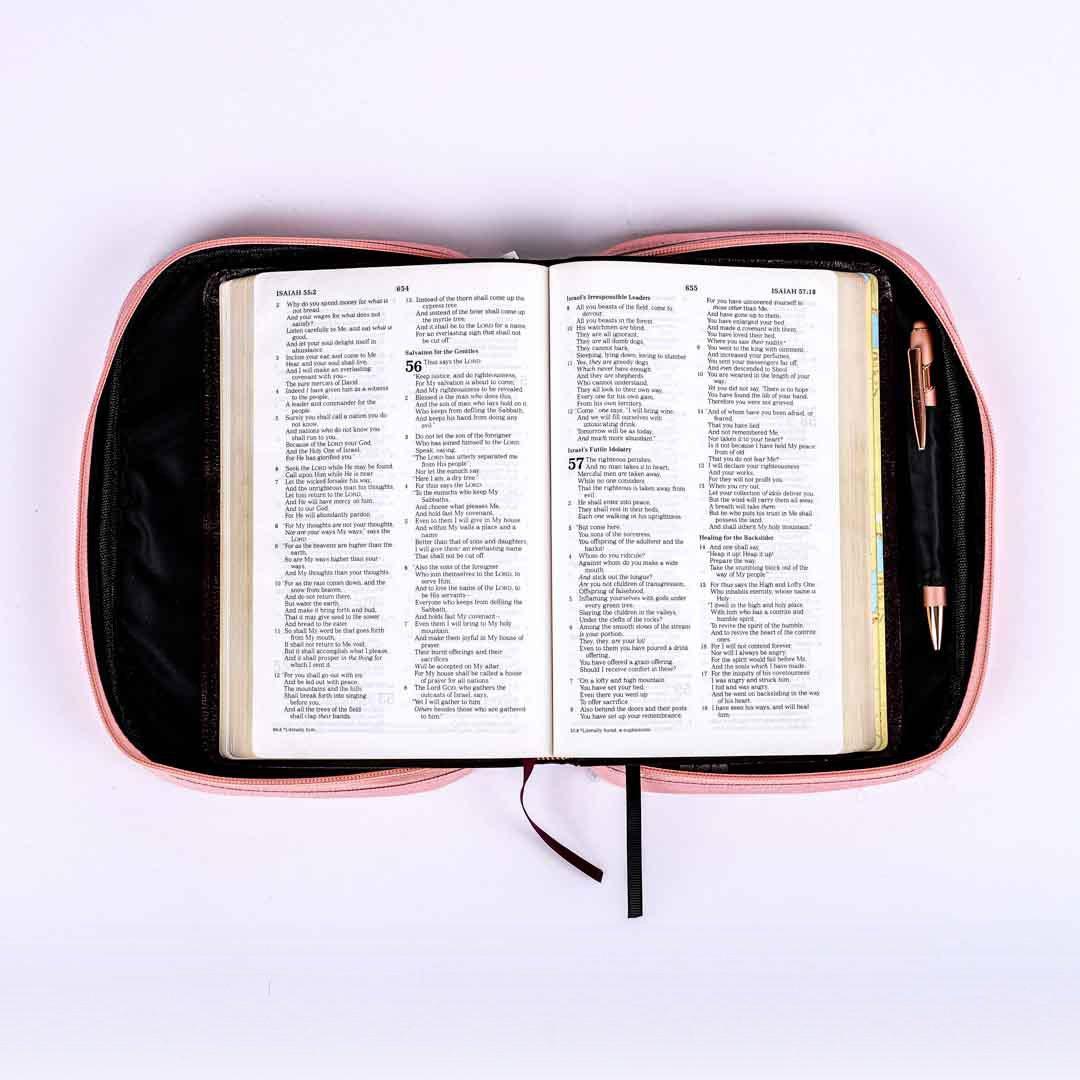 ISAIAH 55:2
654
2 Why do you spend money for what is
not bread,
And your wages for what does not
satisfy?
Listen carefully to Me, and eat what is
good,
And let your soul delight itself in
abundance.
3 Incline your ear, and come to Me.
Hear, and your soul shall live;
And I will make an everlasting
covenant with you—
The sure mercies of David.
4 Indeed I have given him as a witness
to the people,
A leader and commander for the
people.
5 Surely you shall call a nation you do
not know,
And nations who do not know you
shall run to you,
Because of the LORD your God,
And the Holy One of Israel;
For He has glorified you."
6 Seek the LORD while He may be found,
Call upon Him while He is near.
7 Let the wicked forsake his way,
And the unrighteous man his thoughts;
Let him return to the LORD,
And He will have mercy on him;
And to our God,
For He will abundantly pardon.
8 "For My thoughts are not your thoughts,
Nor are your ways My ways," says the
LORD.
9 "For as the heavens are higher than the
earth,
So are My ways higher than your
ways,
And My thoughts than your thoughts.
10 "For as the rain comes down, and the
snow from heaven,
And do not return there,
But water the earth,
And make it bring forth and bud,
That it may give seed to the sower
And bread to the eater,
11 So shall My word be that goes forth
from My mouth;
It shall not return to Me void,
But it shall accomplish what I please,
And it shall prosper in the thing for
which I sent it.
12 "For you shall go out with joy,
And be led out with peace;
The mountains and the hills
Shall break forth into singing
before you,
And all the trees of the field
shall clap their hands.
13 Instead of the thorn shall come up the
cypress tree,
And instead of the brier shall come up
the myrtle tree;
And it shall be to the LORD for a name,
For an everlasting sign that shall not
be cut off."
Salvation for the Gentiles
56 Thus says the LORD:
"Keep justice, and do righteousness,
For My salvation is about to come,
And My righteousness to be revealed.
2 Blessed is the man who does this,
And the son of man who lays hold on it;
Who keeps from defiling the Sabbath,
And keeps his hand from doing any
evil."
3 Do not let the son of the foreigner
Who has joined himself to the LORD
Speak, saying,
"The LORD has utterly separated me
from His people";
Nor let the eunuch say,
"Here I am, a dry tree."
4 For thus says the LORD:
"To the eunuchs who keep My
Sabbaths,
And choose what pleases Me,
And hold fast My covenant,
5 Even to them I will give in My house
And within My walls a place and a
name
Better than that of sons and daughters;
I will give them an everlasting name
That shall not be cut off.
6 "Also the sons of the foreigner
Who join themselves to the LORD, to
serve Him,
And to love the name of the LORD, to
be His servants—
Everyone who keeps from defiling the
Sabbath,
And holds fast My covenant—
7 Even them I will bring to My holy
mountain,
And make them joyful in My house of
prayer.
Their burnt offerings and their
sacrifices
Will be accepted on My altar;
For My house shall be called a house
of prayer for all nations."
8 The Lord GOD, who gathers the
outcasts of Israel, says,
"Yet I will gather to him
Others besides those who are gathered
to him."
*Literally him
655
ISAIAH 57:18
Israel's Irresponsible Leaders
9 All you beasts of the field, come to
devour,
All you beasts in the forest.
10 His watchmen are blind,
They are all ignorant;
They are all dumb dogs,
They cannot bark;
Sleeping, lying down, loving to slumber.
11 Yes, they are greedy dogs
Which never have enough.
And they are shepherds
Who cannot understand;
They all look to their own way,
Every one for his own gain,
From his own territory.
12 "Come," one says, "I will bring wine,
And we will fill ourselves with
intoxicating drink;
Tomorrow will be as today,
And much more abundant."
Israel's Futile Idolatry
57 The righteous perishes,
And no man takes it to heart;
Merciful men are taken away,
While no one considers
That the righteous is taken away from
evil.
2 He shall enter into peace;
They shall rest in their beds,
Each one walking in his uprightness.
3 "But come here,
You sons of the sorceress,
You offspring of the adulterer and the
harlot!
4 Whom do you ridicule?
Against whom do you make a wide
mouth
And stick out the tongue?
Are you not children of transgression,
Offspring of falsehood,
5 Inflaming yourselves with gods under
every green tree,
Slaying the children in the valleys,
Under the clefts of the rocks?
6 Among the smooth stones of the stream
Is your portion;
They, they, are your lot!
Even to them you have poured a drink
offering,
You have offered a grain offering.
Should I receive comfort in these?
7 "On a lofty and high mountain
You have set your bed;
Even there you went up
To offer sacrifice.
8 Also behind the doors and their posts
You have set up your remembrance;
For you have uncovered yourself to
those other than Me,
And have gone up to them;
You have enlarged your bed
And made a covenant with them;
You have loved their bed,
Where you saw their nudity.*
9 You went to the king with ointment,
And increased your perfumes;
You sent your messengers far off,
And even descended to Sheol.
10 You are wearied in the length of your
way;
Yet you did not say, 'There is no hope.'
You have found the life of your hand;
Therefore you were not grieved.
11 "And of whom have you been afraid, or
feared,
That you have lied
And not remembered Me,
Nor taken it to your heart?
Is it not because I have held My peace
from of old
That you do not fear Me?
12 I will declare your righteousness
And your works,
For they will not profit you.
13 When you cry out,
Let your collection of idols deliver you.
But the wind will carry them all away,
A breath will take them.
But he who puts his trust in Me shall
possess the land,
And shall inherit My holy mountain."
Healing for the Backslider
14 And one shall say,
"Heap it up! Heap it up!
Prepare the way,
Take the stumbling block out of the
way of My people."
15 For thus says the High and Lofty One
Who inhabits eternity, whose name is
Holy:
"I dwell in the high and holy place,
With him who has a contrite and
humble spirit,
To revive the spirit of the humble,
And to revive the heart of the contrite
ones.
16 For I will not contend forever,
Nor will I always be angry;
For the spirit would fail before Me,
And the souls which I have made.
17 For the iniquity of his covetousness
I was angry and struck him;
I hid and was angry,
And he went on backsliding in the way
of his heart.
18 I have seen his ways, and will heal
him;
57:8 *Literally hand, a euphemism